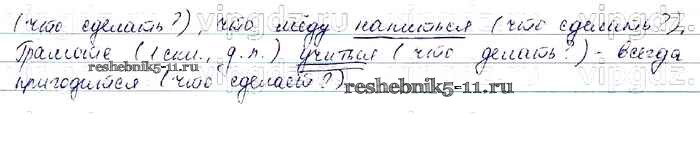 (что сделать?), что мёду напиться (что сделать?).
Грамоте (1 скл., д.п.) учиться (что делать?) - всегда
пригодится (что сделает?)
reshebnik5-11.ru
reshebnik5-11.ru